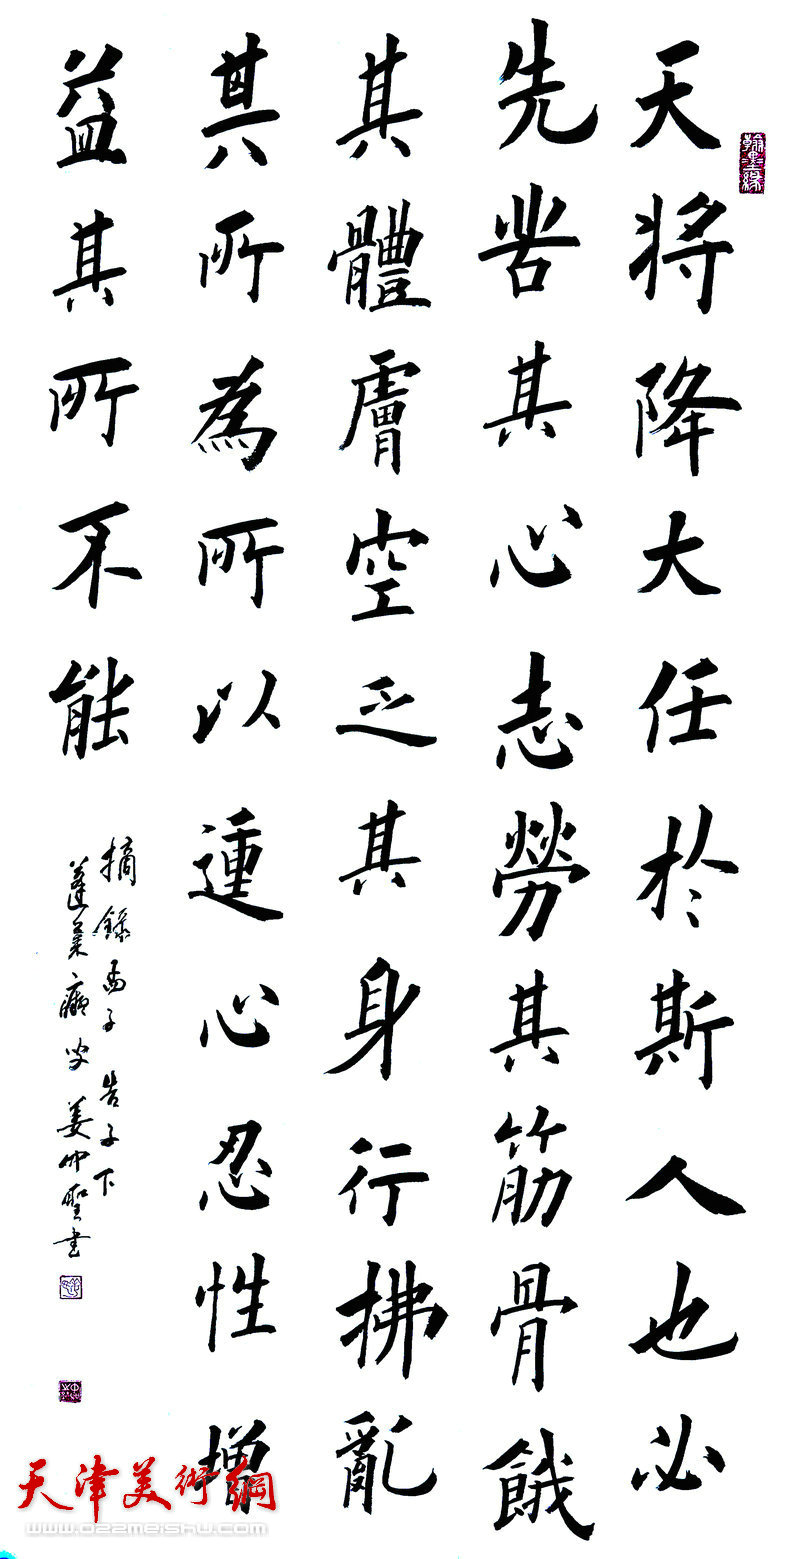 翰墨緣
天将降大任於斯人也必
先苦其心志勞其筋骨餓
其體膚空乏其身行拂亂
其所為所以𨔝心忍性增
益其所不能
摘録孟子 告子下
蓬萊癡叟 姜仲聖書
天津美術網
www.022meishu.com